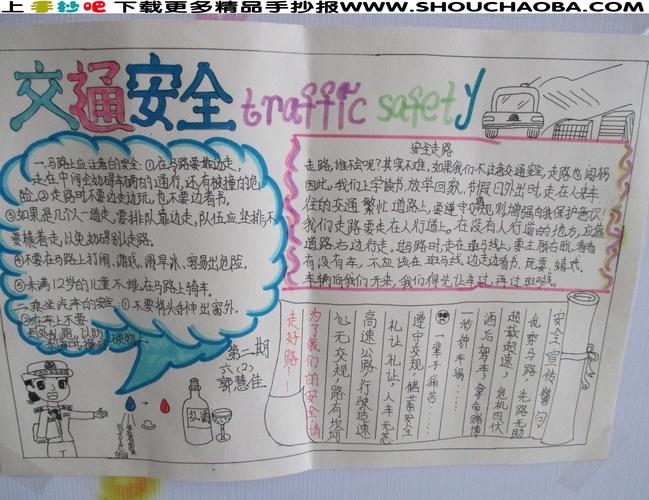 上手抄吧 下载更多精品手抄报WWW.SHOUCHAOBA.COM
交通安全 traffic safety
一.马路上应注意的安全:①在马路要靠边走,
走在中间会妨碍车辆的通行,还有被撞的危
险。②走路时不要边走边玩,也不要边看书。
③如果是几个人一道走,要排队靠边走,队伍应竖排不
要横着走,以免妨碍别人走路。
④不要在马路上打闹、游戏、滑旱冰,容易出危险。
⑤未满12岁的儿童不准在马路上骑车。
二.乘坐汽车的安全:①不要将头手伸出窗外。
②在车上不要
第二期
六(2)
郭慧佳
安全走路
走路,谁不会呢?其实不难,如果我们不注意交通安全,走路也闯祸
因此,我们上学读书,放学回家,节假日外出时,走在人来车
往的交通繁忙道路上,要遵守交规则增强自我保护意识!
我们走路要走在人行道上,在没有人行道的地方,应靠
道路右边行走。过马路时,走在斑马线上,要左顾右盼,看看
有没有车,不应该在斑马线边走边看书、玩耍、嬉戏。
车辆向我们开来,我们得先让车过,再过斑马线。
安全宣传警句
乱穿马路,先路无助
超载超速,危机四伏
酒后驾车,拿命赌博
一秒钟车祸……
一辈子痛苦……
遵守交规,储蓄安全
礼让礼让,人车无恙
高速公路,行驶适速
心无交规,路有坎坷
为了我们的安全请
走好路!
红酒